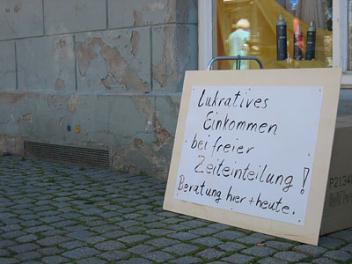 Lukratives
Einkommen
bei freier
Zeiteinteilung!
Beratung hier + heute..